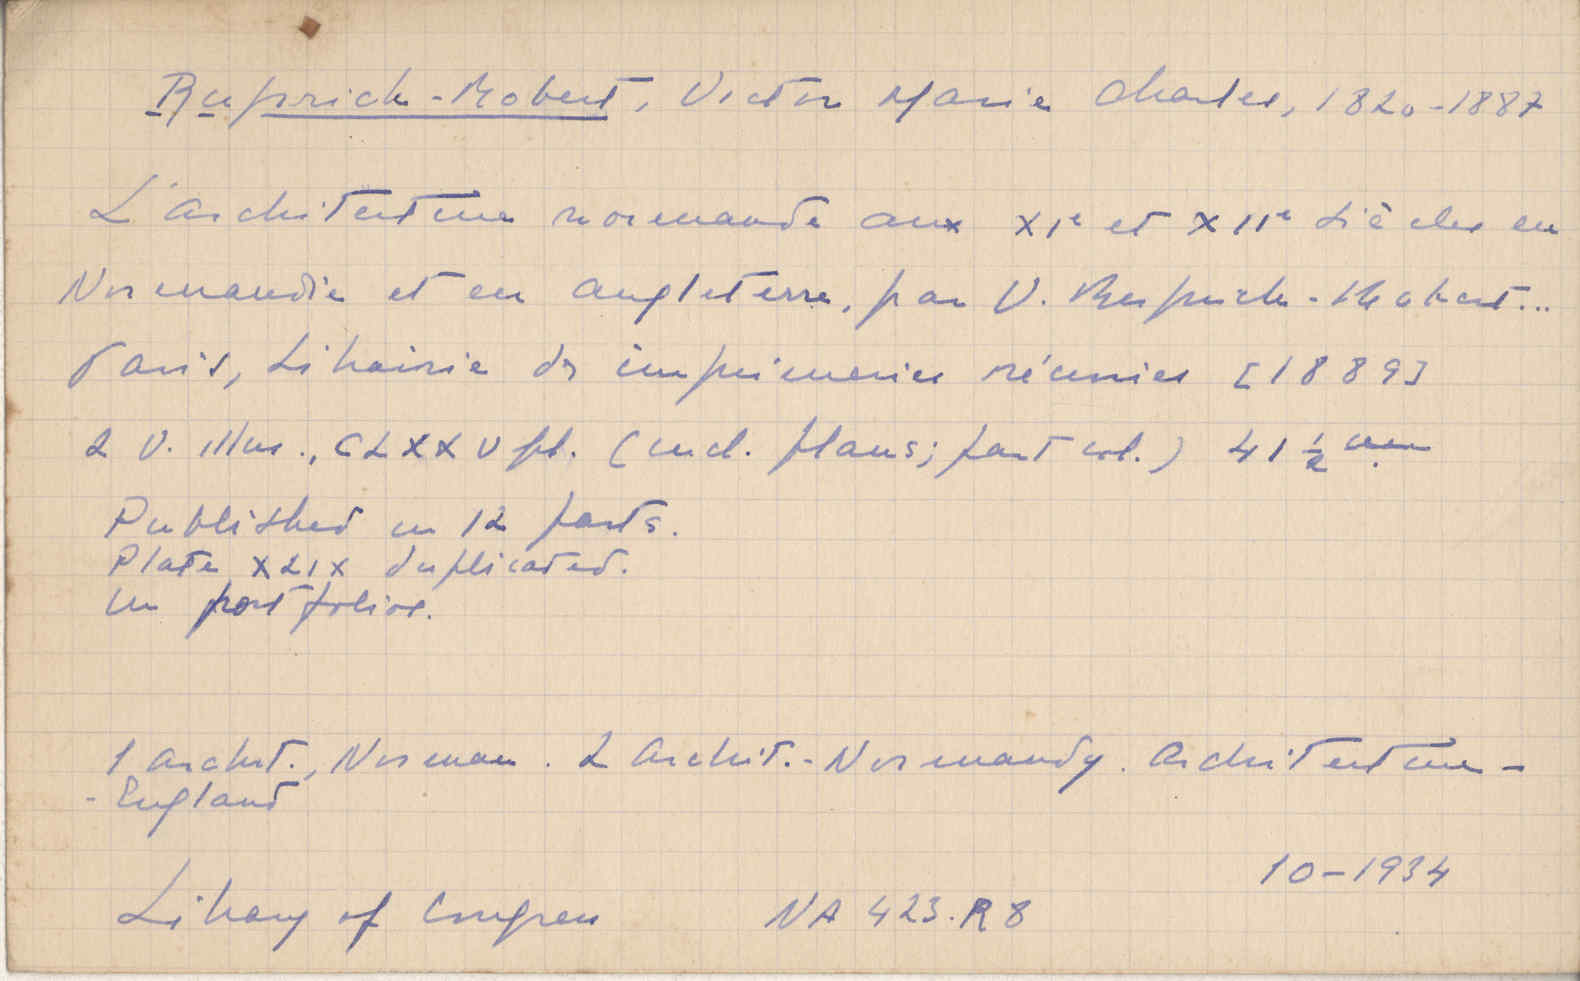 Ruprich-Robert, Victor Marie Charles, 1820-1887
L'architecture normande aux XIe et XIIe siècles en
Normandie et en Angleterre, par V. Ruprich-Robert...
Paris, Librairie des imprimeries réunies [1889]
2 v. illus., CLXXV pl. (incl. plans; part col.) 41 ½ cm.
Published in 12 parts.
Plate XLIX duplicated.
In portfolios.
1 Archit., Norman. 2 Archit.-Normandy. Architecture-
-England
10-1934
Library of Congress NA 423.R8